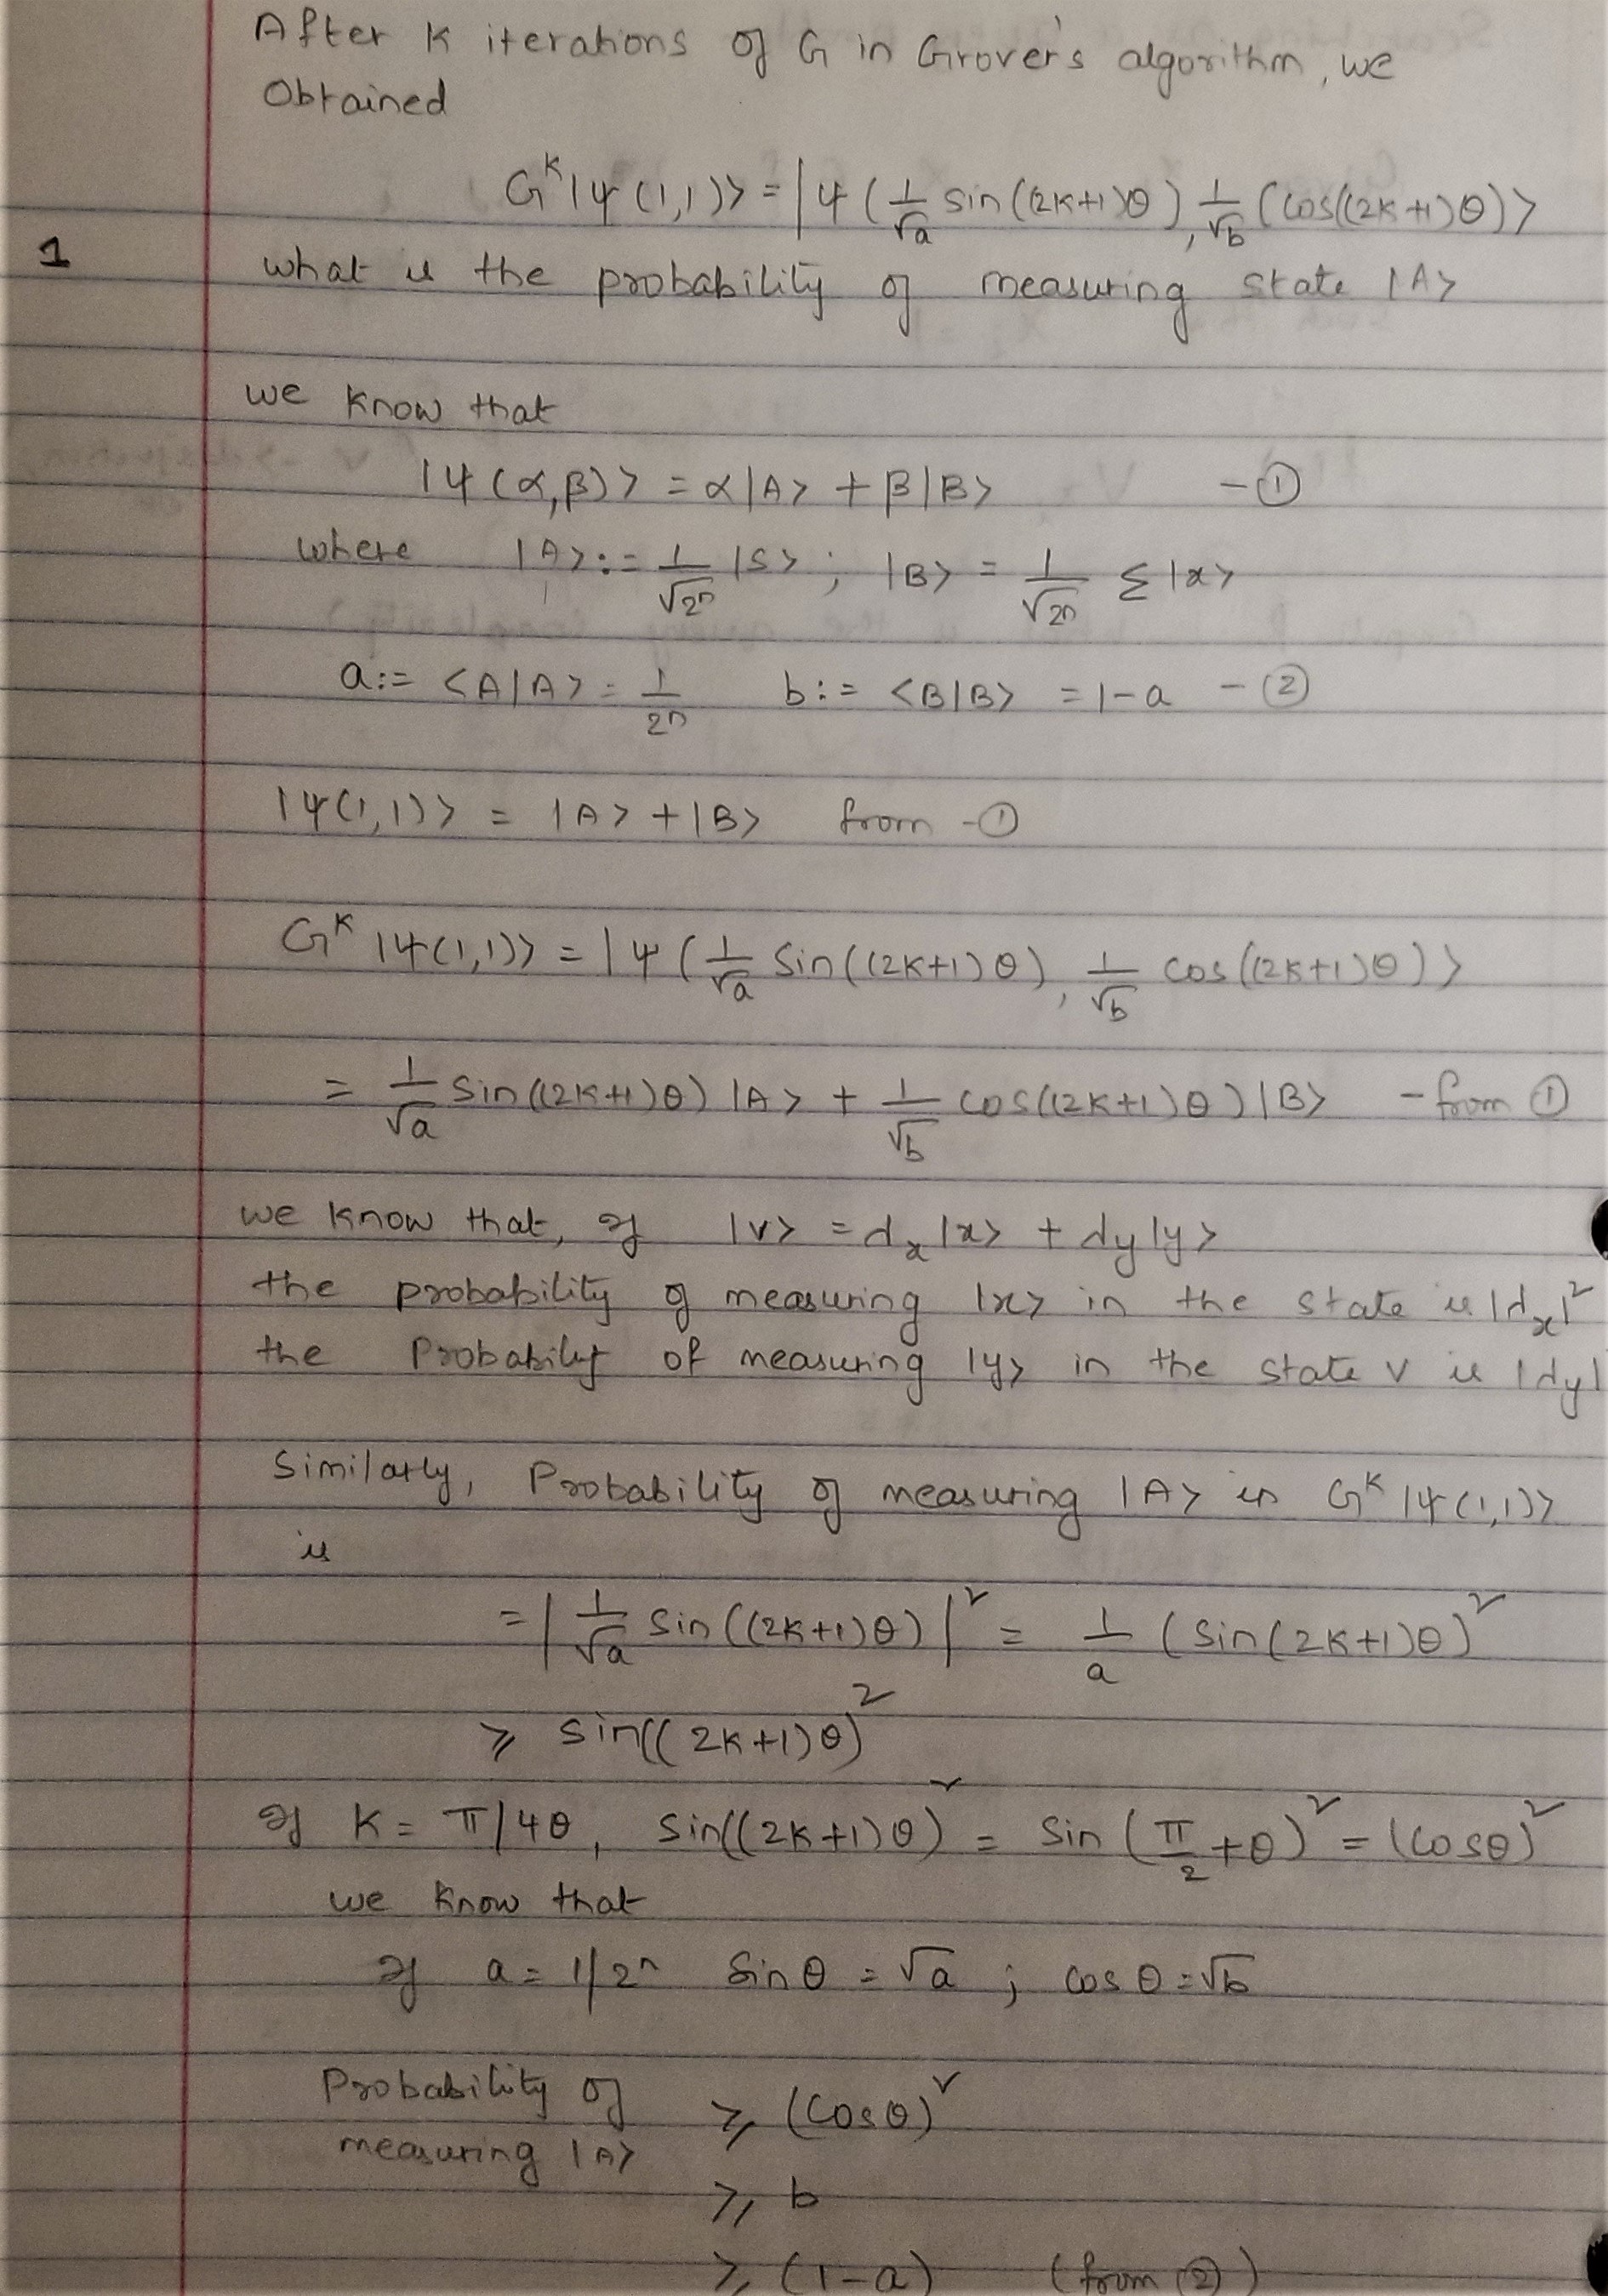 After K iterations of G in Grover's algorithm, we
Obtained
G^K |ψ(1,1)> = |ψ(1/√a sin((2K+1)θ), 1/√b (cos((2K+1)θ)>
1
what is the probability of measuring state |A>
we know that
|ψ(α,β)> = α|A> + β|B> - ①
where |A> := 1/√2^n |S> ; |B> = 1/√2^n Σ|x>
a := <A|A> = 1/2^n b := <B|B> = 1-a - ②
|ψ(1,1)> = |A> + |B> from - ①
G^K |ψ(1,1)> = |ψ(1/√a sin((2K+1)θ), 1/√b cos((2K+1)θ)>
= 1/√a sin((2K+1)θ) |A> + 1/√b cos((2K+1)θ) |B> - from ①
we know that, if |v> = α_x |x> + α_y |y>
the probability of measuring |x> in the state is |α_x|²
the Probability of measuring |y> in the state v is |α_y|
Similarly, Probability of measuring |A> in G^K |ψ(1,1)>
is
= |1/√a sin((2K+1)θ)|² = 1/a (sin(2K+1)θ)²
≥ sin((2K+1)θ)²
if K = π/4θ, sin((2K+1)θ)² = sin(π/2 + θ)² = (cosθ)²
we know that
if a = 1/2^n sinθ = √a ; cosθ = √b
Probability of
measuring |A> ≥ (cosθ)²
≥ b
≥ (1-a) (from ②)